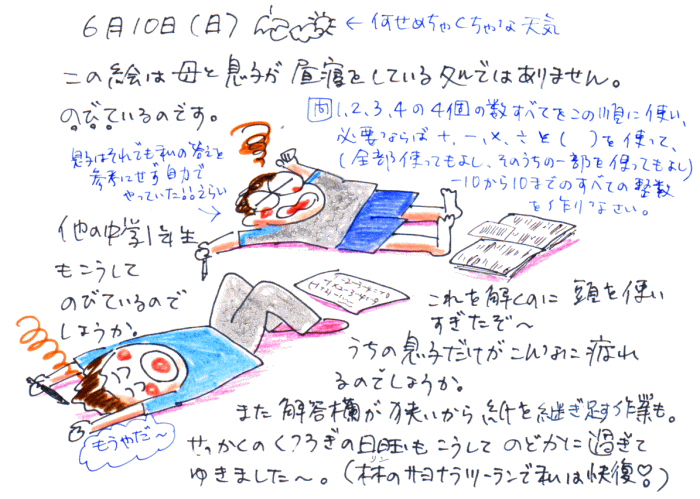 6月10日(日)
←何せめちゃくちゃな天気
この絵は母と息子が昼寝をしている図ではありません。
のびているのです。
問 1,2,3,4の4個の数すべてをこの順に使い、
必要ならば+,-,×,÷と( )を使って、
(全部使ってもよし、そのうちの一部を使ってもよし)
-10から10までのすべての整数
を作りなさい。
息子はそれでも私の答えを
参考にせず自力で
やっていた!!えらい
他の中学1年生
もこうして
のびているので
しょうか。
これを解くのに頭を使い
すぎたぞ〜
うちの息子だけがこんなに疲れ
るのでしょうか。
また解答欄が狭いから紙を継ぎ足す作業も。
もうやだ〜
せっかくのくつろぎの日曜もこうしてのどかに過ぎて
ゆきました〜。(林のサヨナラツーランで私は快復♡!)
リン